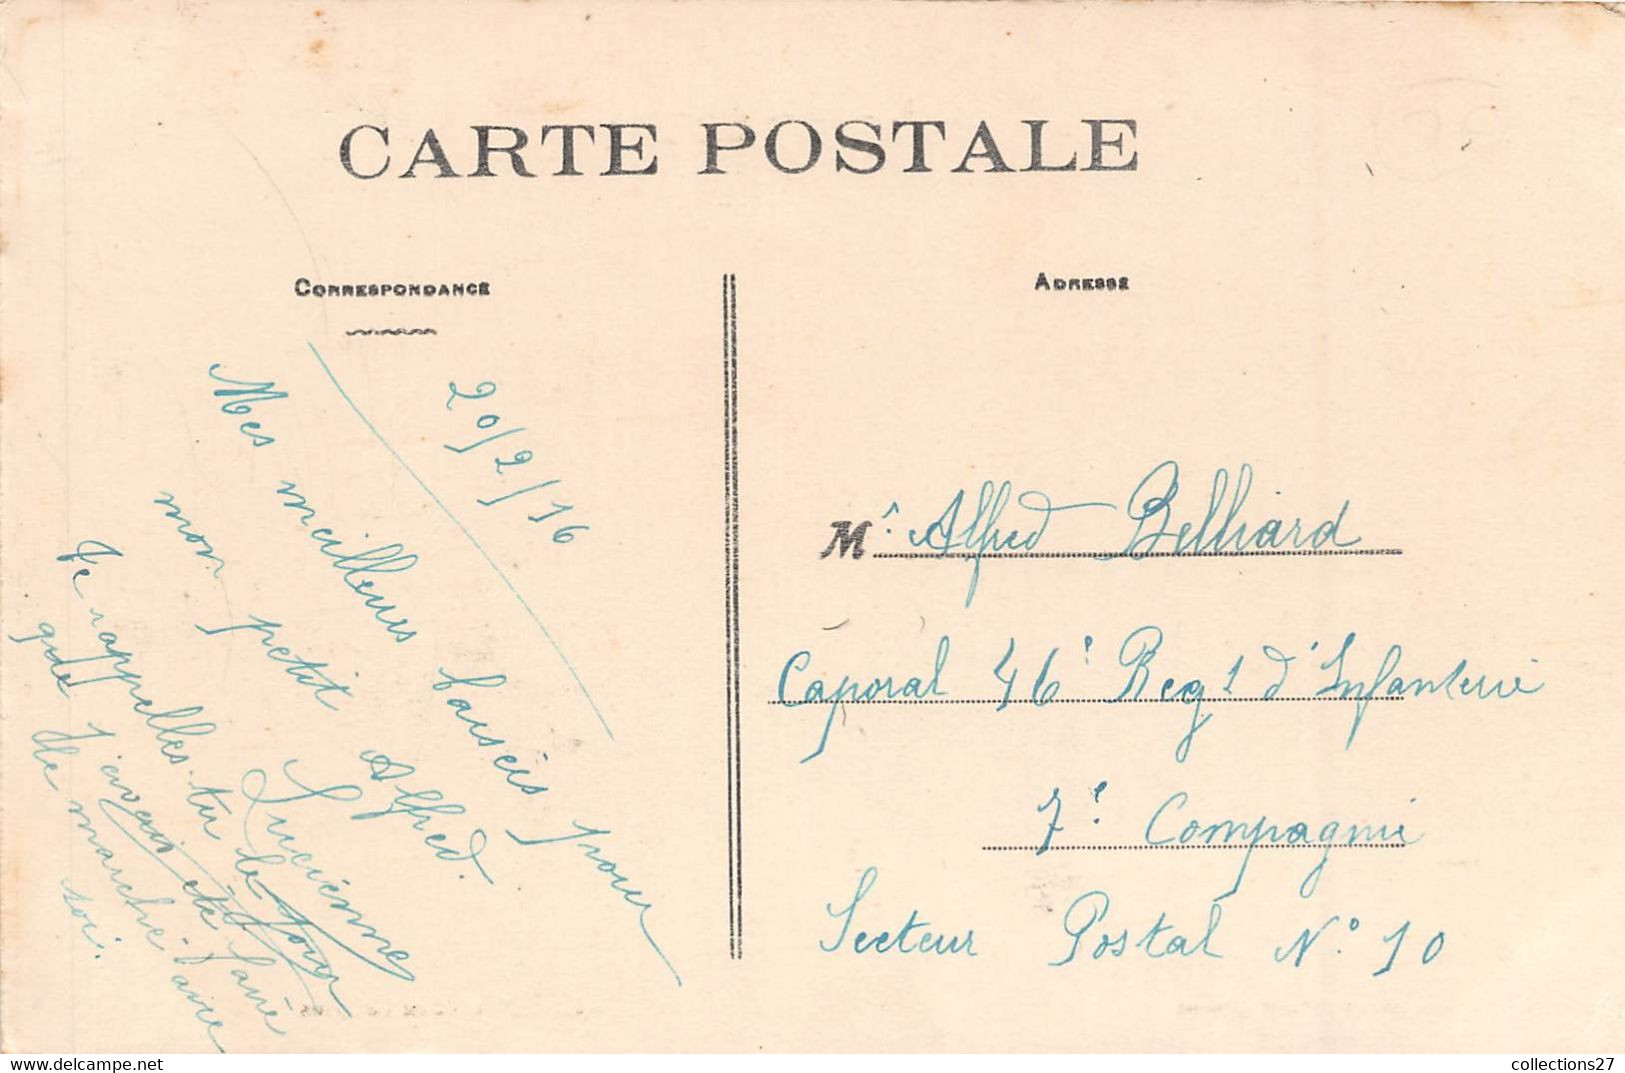 CARTE POSTALE
CORRESPONDANCE
ADRESSE
20/2/16
Mes meilleurs baisers pour
mon petit Alfred.
Lucienne
Te rappelles-tu le jour
que j'avais été faire
le marché avec
toi.
Mr. Alfred Belliard
Caporal 46e Regt d'Infanterie
7e Compagnie
Secteur Postal No. 10
delcampe.net
collections27